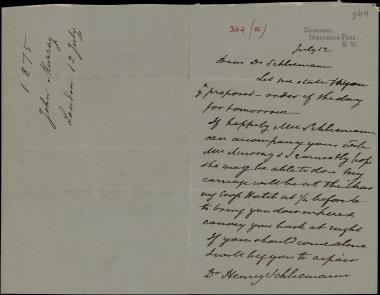 1875
John Murray
London 12 July
344 (a)
344
NEWSTEAD,
WIMBLEDON PARK,
S.W.
July 12
Dear Dr Schliemann
Let me state to you
proposed order of the day
for tomorrow.
If happily Mrs Schliemann
can accompany you, as
Mrs Murray & I earnestly hope
she may be able to do my
carriage will be at
at 1/4 before
to bring you down where &
convey you back at night
If you should come alone
I will beg you to
Dr Henry Schliemann